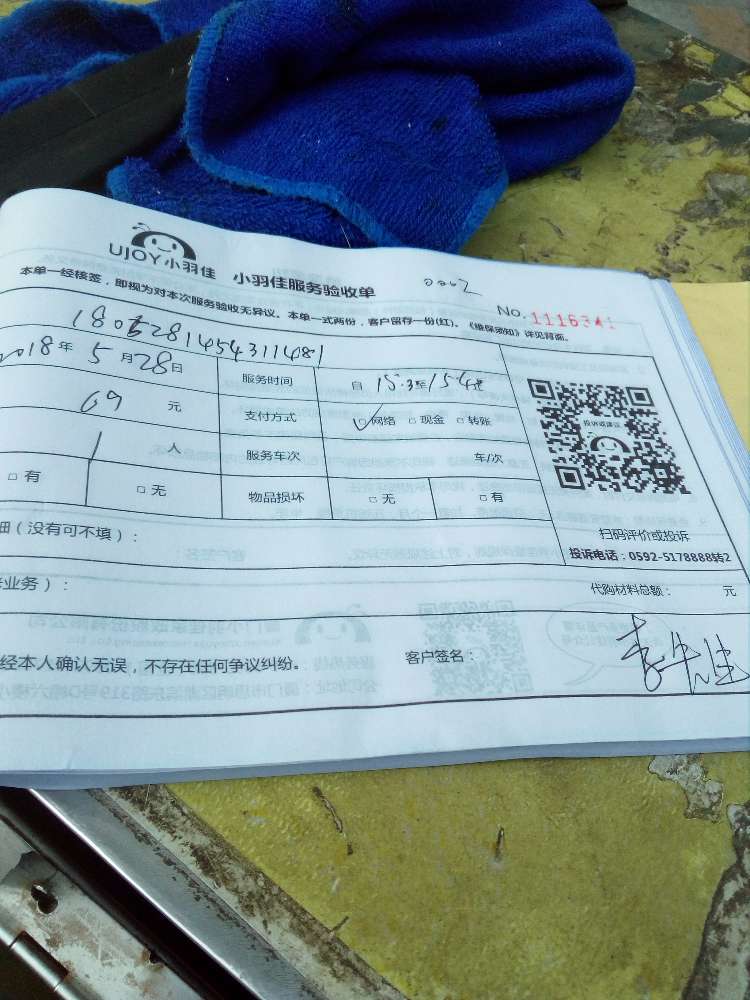 UJOY小羽佳 小羽佳服务验收单
No. 1116341
本单一经核签，即视为对本次服务验收无异议。本单一式两份，客户留存一份(红)。《维保须知》详见背面。
2018年5月28日 服务时间 自15.3至
69元 支付方式 ☑网络 □现金 □转账
投诉或建议
1人 服务车次 车/次
□有 □无 物品损坏 □无 □有
细（没有可不填）：
扫码评价或投诉
投诉电话：0592-5178888转2
业务）：
代购材料总额： 元
经本人确认无误，不存在任何争议纠纷。 客户签名：